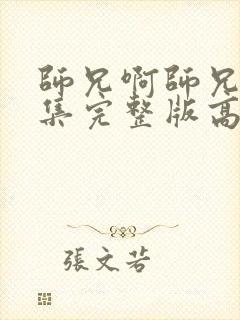 師兄啊師兄
集完整版高
張文若